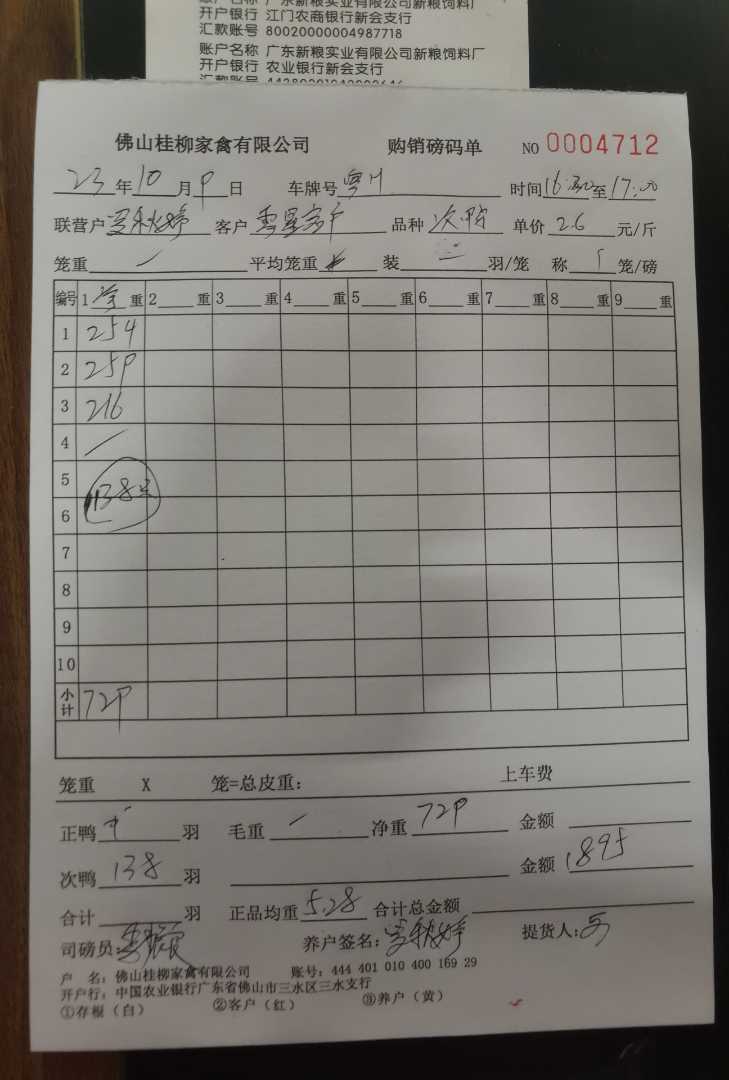 账户名称 广东新粮实业有限公司新粮饲料厂
开户银行 江门农商银行新会支行
汇款账号 80020000004987718
账户名称 广东新粮实业有限公司新粮饲料厂
开户银行 农业银行新会支行
汇款账号
佛山桂柳家禽有限公司 购销磅码单 NO 0004712
23年10月9日 车牌号 时间16:30至17:00
联营户 客户 品种次鸭 单价2.6元/斤
笼重 / 平均笼重 装 羽/笼 称1笼/磅
编号 1 重 2 重 3 重 4 重 5 重 6 重 7 重 8 重 9 重
1 254
2 259
3 216
4 /
5
138只
6
7
8
9
10
小计 729
笼重 X 笼=总皮重: 上车费
正鸭 羽 毛重 / 净重729 金额
次鸭138羽 金额1895
合计 羽 正品均重5.28 合计总金额
司磅员: 养户签名: 提货人:
户 名: 佛山桂柳家禽有限公司 账号: 444 401 010 400 169 29
开户行: 中国农业银行广东省佛山市三水区三水支行
①存根(白) ②客户(红) ③养户(黄)